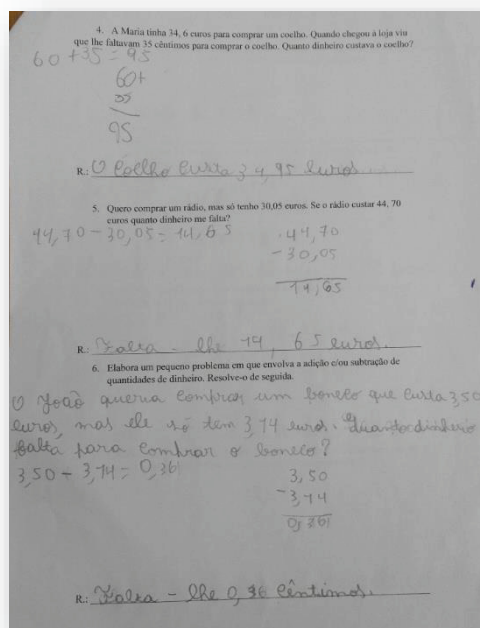 4. A Maria tinha 34, 6 euros para comprar um coelho. Quando chegou à loja viu
que lhe faltavam 35 cêntimos para comprar o coelho. Quanto dinheiro custava o coelho?
60 + 35 = 95
60+
35
95
R.: O Coelho Custa 34,95 euros.
5. Quero comprar um rádio, mas só tenho 30,05 euros. Se o rádio custar 44, 70
euros quanto dinheiro me falta?
44,70 - 30,05 = 14,65
44,70
- 30,05
14,65
R.: Falta - lhe 14, 65 euros.
6. Elabora um pequeno problema em que envolva a adição e/ou subtração de
quantidades de dinheiro. Resolve-o de seguida.
O João queria comprar um boneco que custa 3,50
euros, mas ele só tem 3,14 euros. Quando dinheiro
falta para comprar o boneco?
3,50 - 3,14 = 0,36
3,50
- 3,14
0,36
R.: Falta - lhe 0,36 cêntimos.